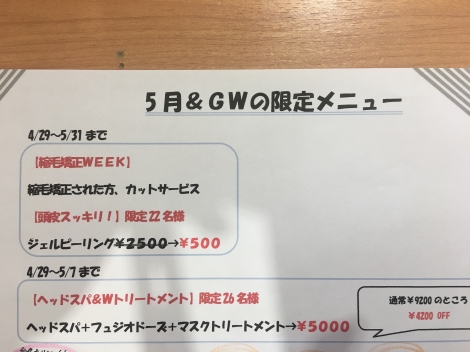 ５月＆ＧＷの限定メニュー
4/29～5/31まで
【縮毛矯正ＷＥＥＫ】
縮毛矯正された方、カットサービス
【頭皮スッキリ！】限定22名様
ジェルピーリング¥2500→¥500
4/29～5/7まで
【ヘッドスパ&Wトリートメント】限定26名様
ヘッドスパ＋フュジオドーズ＋マスクトリートメント→¥5000
通常¥9200のところ
¥4200 OFF